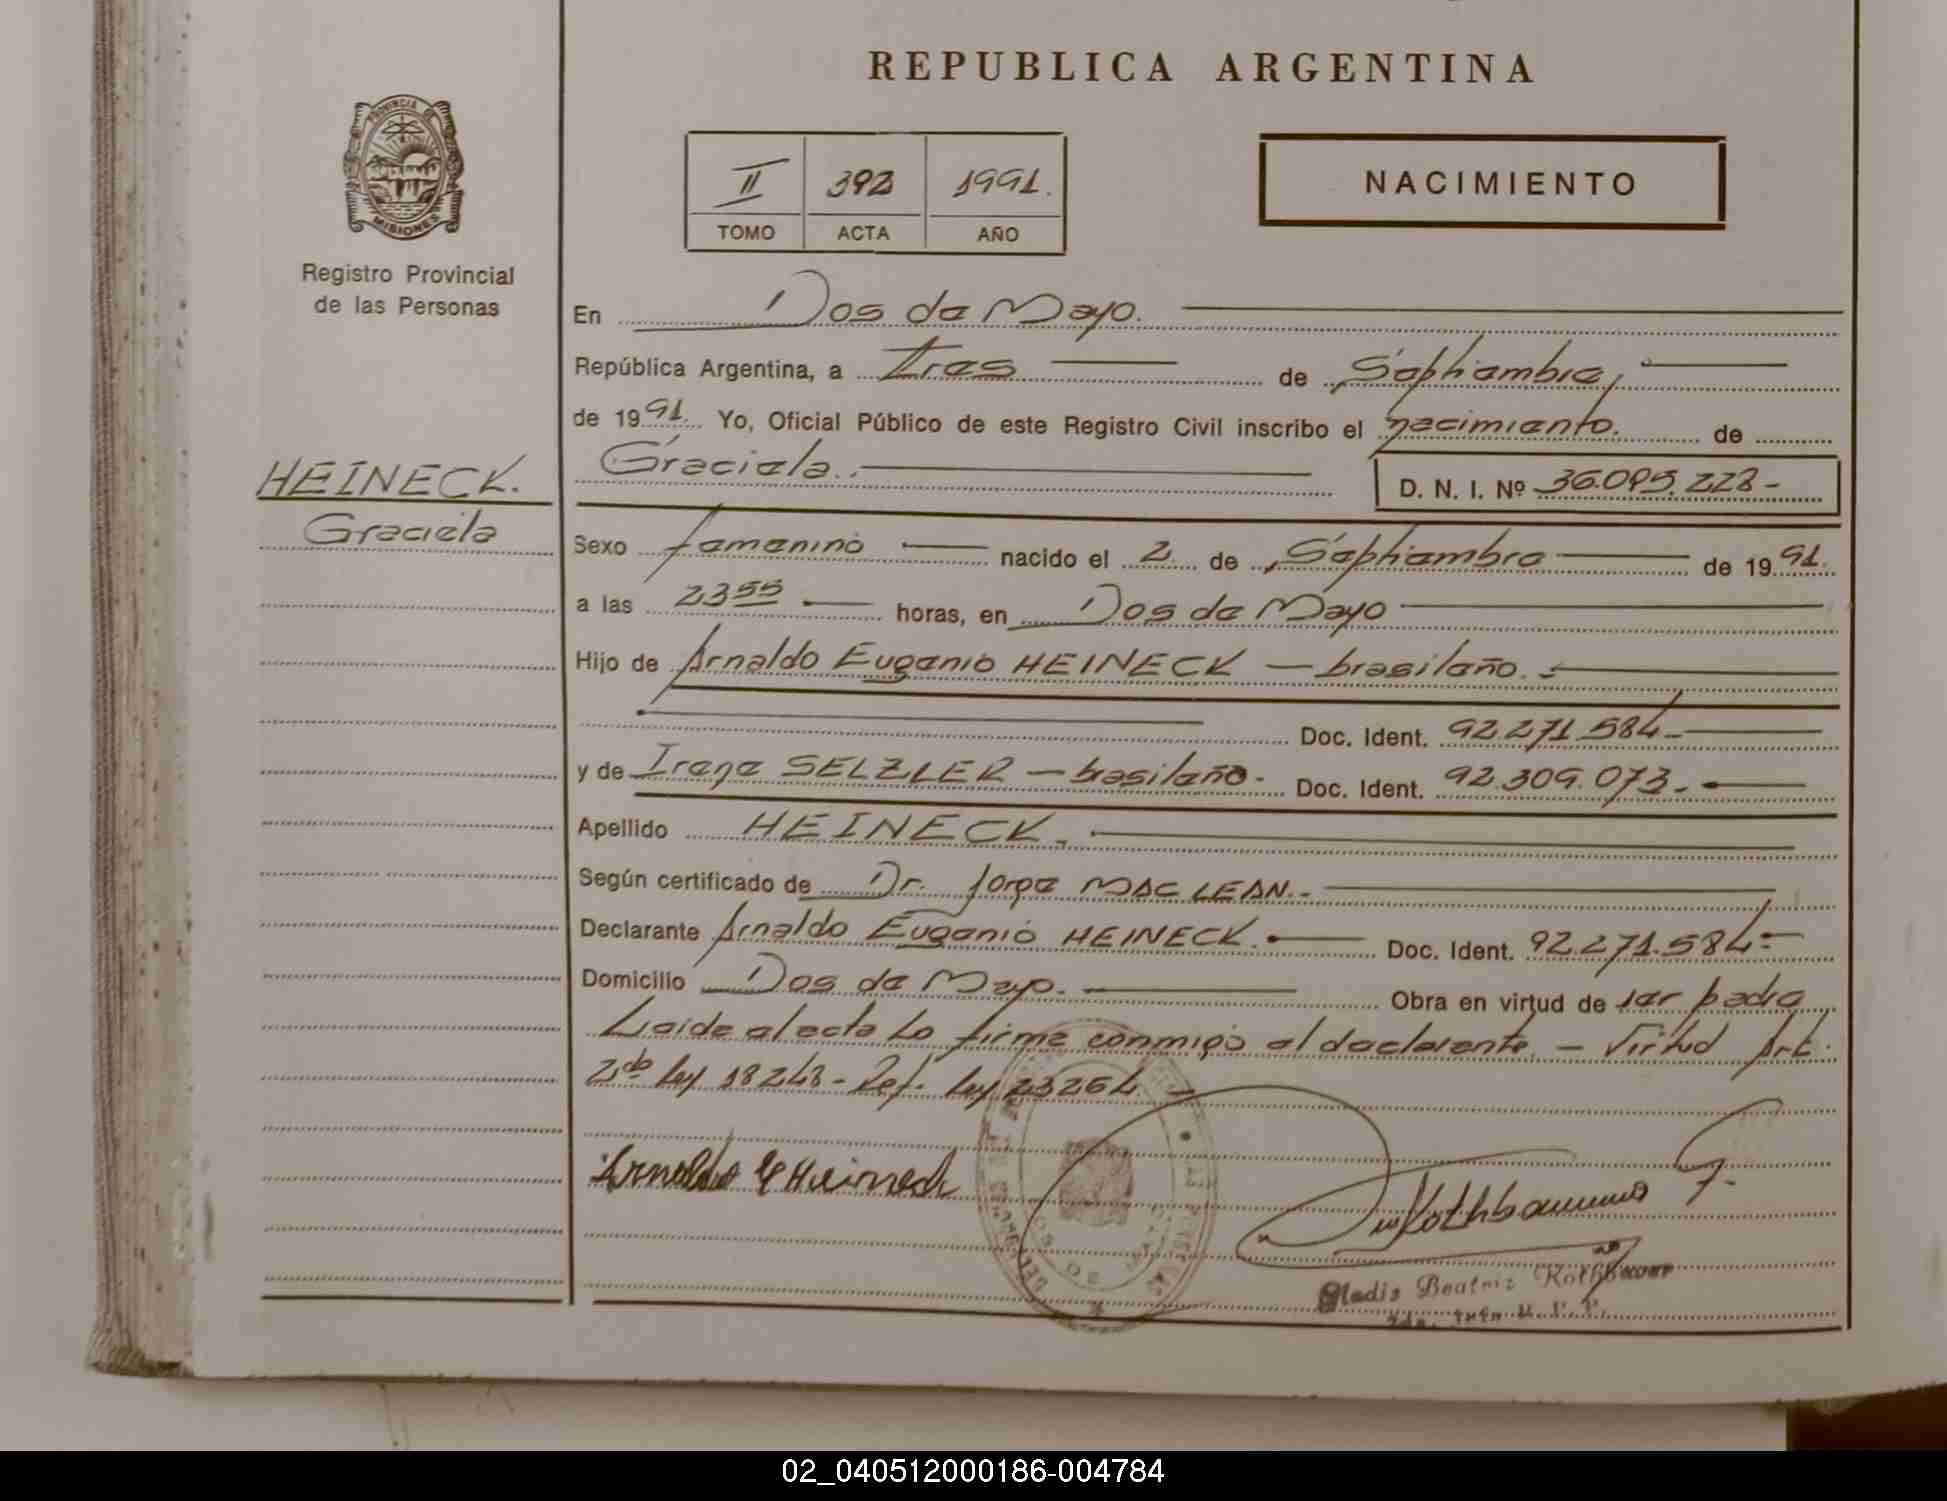 REPUBLICA ARGENTINA
PROVINCIA DE MISIONES
Registro Provincial
de las Personas
II 392 1991.
TOMO ACTA AÑO
NACIMIENTO
En Dos de Mayo.
República Argentina, a tres de Septiembre,
de 1991. Yo, Oficial Público de este Registro Civil inscribo el nacimiento. de
Graciela.
D. N. I. Nº 36.095.228-
HEINECK.
Graciela
Sexo femenino nacido el 2 de Septiembre de 1991.
a las 23 55 horas, en Dos de Mayo
Hijo de Arnaldo Eugenio HEINECK — brasileño.-
Doc. Ident. 92.271.584-
y de Irene SELZLER — brasileño- Doc. Ident. 92.309.073.-
Apellido HEINECK.
Según certificado de Dr. Jorge MAC LEAN.-
Declarante Arnaldo Eugenio HEINECK. Doc. Ident. 92.271.584-
Domicilio Dos de Mayo. Obra en virtud de ser padre
Leída el acta la firma conmigo el declarante. — Virtud Art.
2do ley 18248- Ref. ley 23264
Arnaldo E Heineck
Gladis Beatriz Rothbauer